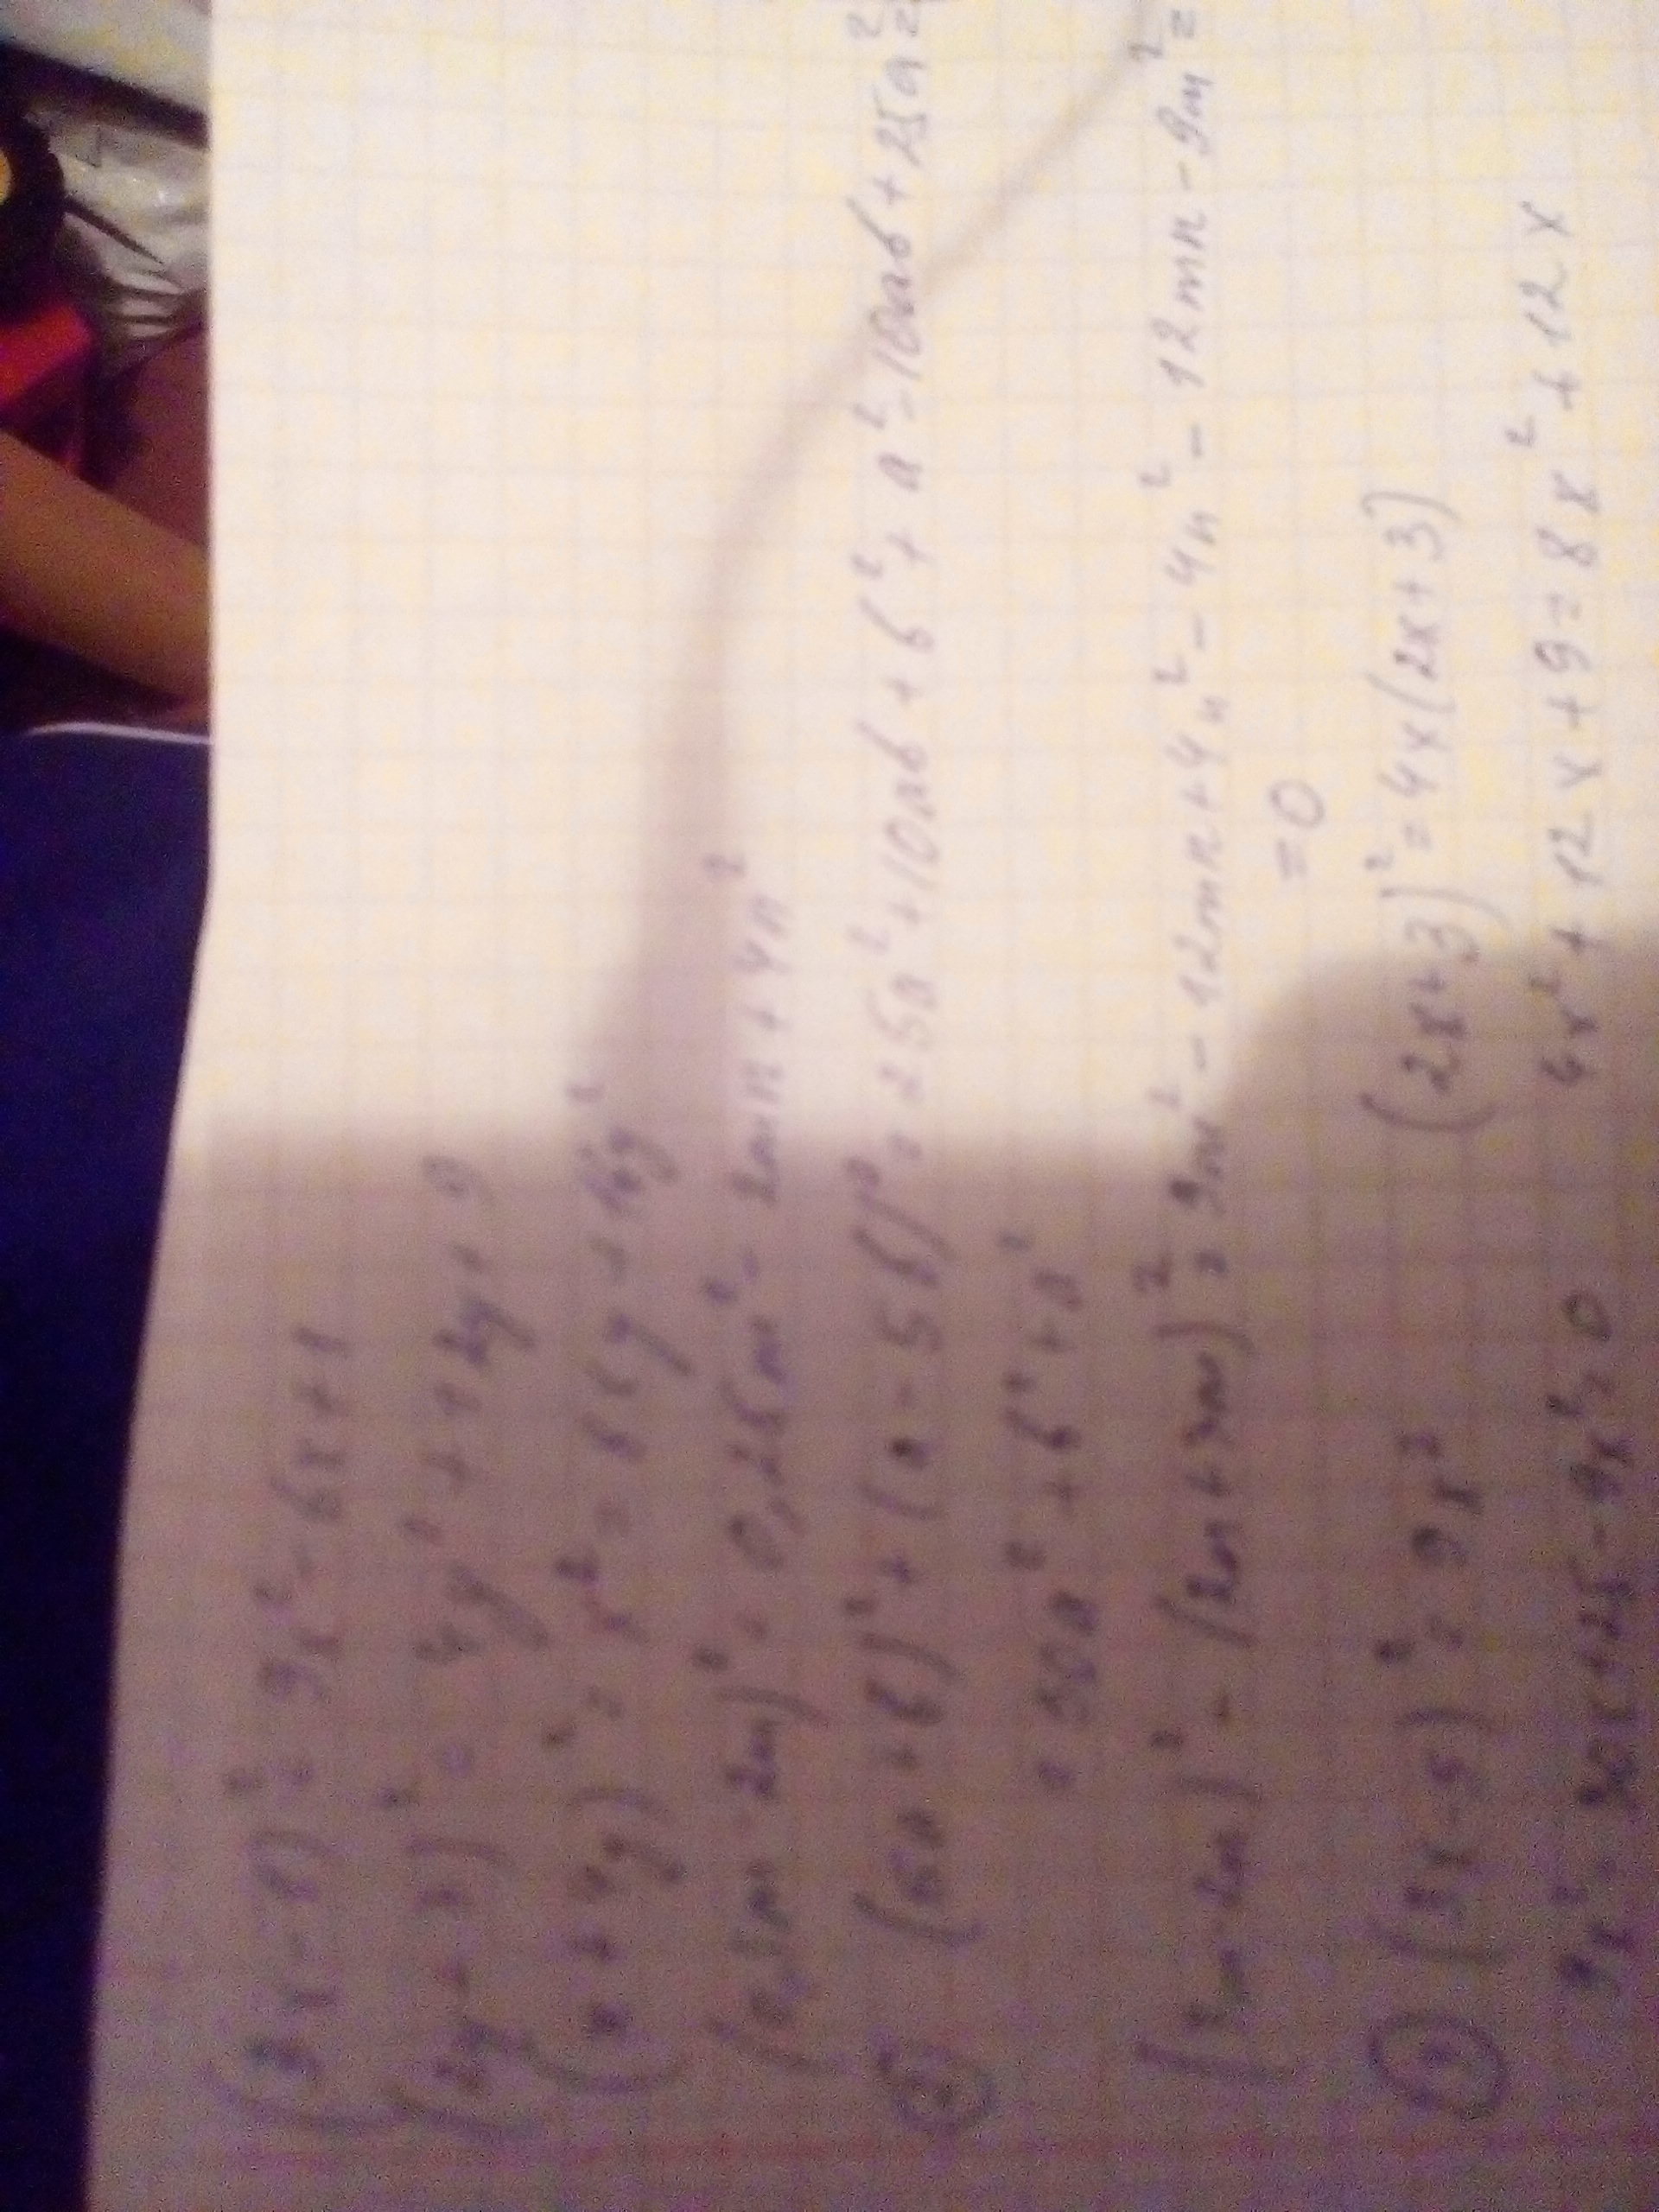 (3x-1)² = 9x² - 6x + 1
= 4y² + 12y + 9
(x + 4y)² = x² + 8xy + 16y²
(0,5m - 2n)² = 0,25m² - 2mn + 4n²
(5a + b)² + (a - 5b)² = 25a² + 10ab + b² + a² - 10ab + 25a² =
= 50a² + b² + a²
(3m - 2n)² - (2n + 3m)² = 9m² - 12mn + 4n² - 4n² - 12mn - 9m² =
= 0
(3x - 5)² = 9x² (2x + 3)² = 4x(2x + 3)
9x² - 30x + 25 - 9x² = 0 4x² + 12x + 9 = 8x² + 12x